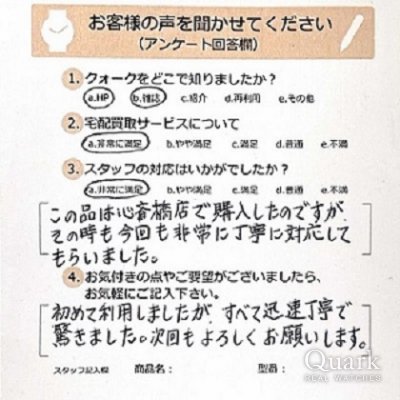 お客様の声を聞かせてください
(アンケート回答欄)
1. クォークをどこで知りましたか?
a.HP b.雑誌 c.紹介 d.再利用 e.その他
2. 宅配買取サービスについて
a.非常に満足 b.やや満足 c.満足 d.普通 e.不満
3. スタッフの対応はいかがでしたか?
a.非常に満足 b.やや満足 c.満足 d.普通 e.不満
この品は心斎橋店で購入したのですが
その時も今回も非常に丁寧に対応して
もらいました。
4. お気付きの点やご要望がございましたら、
お気軽にご記入下さい。
初めて利用しましたが、すべて迅速丁寧で
驚きました。次回もよろしくお願いします。
スタッフ記入欄 商品名: 型番:
Quark
REAL WATCHES